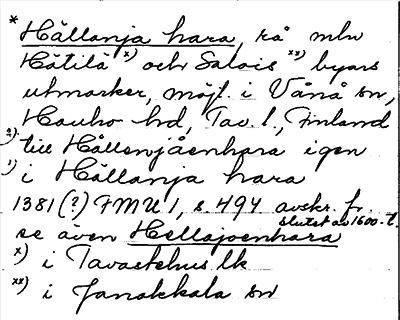 * Hållanja hara, rå mln
Hätilä x) och Salois xx) byars
utmarker, möjl. i Vånå sn,
Hauho hd, Tav. l., Finland
2) till Hållenjåenhara igen
1) i Hållanja hara
1381 (?) FMU 1, s. 494 avskr. fr.
slutet av 1600-t.
se även Hellajoenhara
x) i Tavastehus lk
xx) i Janakkala sn